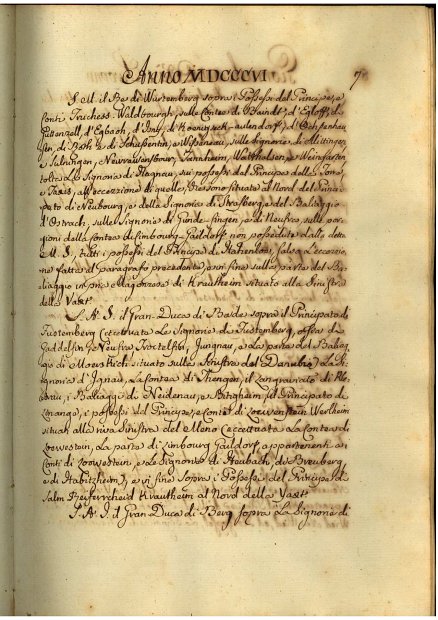 Anno MDCCCVI 7
S. M. il Re di Wurtemberg sopra i Possessi del Principe, e
Conti Truchsess Waldbourgh, sulle Contee di Baindt, d'Egloff, di
Gutenzell, d'Egbach, d'Isny, di Koenigseck-aulendorf, d'Ochsenhau
sen, di Roth, di Schussenried, e Wissenau, sulle Signorie di Mittingen,
e Sulmingen, Neuravensbourg, Tannheim, Warthausen, e Weingarten
tolta la Signoria d'Hagnau, sui possessi del Principe della Torre,
e Taxis, all'eccezione di quelle, che sono situate al Nord del Princi=
pato di Neubourg, e della Signoria di Strasberg, e del Baliaggio
d'Ostrach, sulle Signorie di Gunde-fingen, e di Neufra, sulle por=
zioni della Contea di Limbourg Gaildorf non possedute dalla detta
M. S., tutti i possessi del Principe di Hohenloe, salva l'eccezio=
ne fatta al paragrafo precedente, e in fine sulla parte del Ba=
liaggio in prie Magonzese di Krautheim situato alla Sinistra
della Yaxt.
S. A. S. il Gran Duca di Bade sopra il Principato di
Furstemberg (eccettuate le Signorie di Furstemberg, ossia di
Gundelfingen, e Neufra Trochtelfen, Jungnau, e la parte del Balia=
ggio di Moeskirch situato sulla Sinistra del Danubio) la Si=
gnoria d'Hagnau, la Contea di Thengen, il Langraviato di Kle=
tgau, i Baliaggi di Neidenau, e Billigheim, il Principato di
Leinange, i possessi del Principe, e Conte di Loewenstein Wertheim
situati alla riva Sinistra del Meno (eccettuata la Contea di
Loewestein, la parte di Limbourg Gaildorf, appartenenti ai
Conti di Loewestein, e le Signorie di Haubach, di Breuberg,
e di Habitzheim), e in fine sopra i Possessi del Principe di
Salm Reiferrcheid Krautheim al Nord della Yaxt.
S. A. I. il Gran Duca di Berg sopra la Signoria di